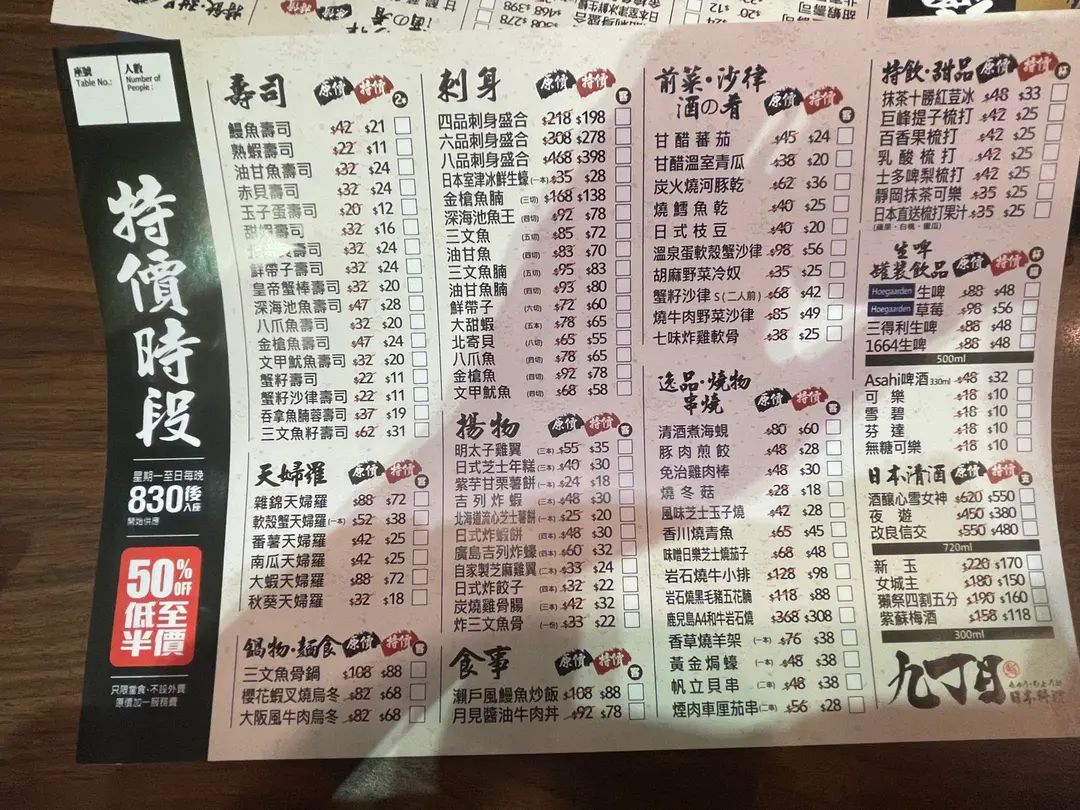 座號
Table No.:
人數
Number of
People :
特價時段
星期一至日每晚
830後
入座
開始供應
50%
OFF
低至
半價
只限堂食、不設外賣
原價加一服務費
壽司 原價 特價
鰻魚壽司 $42 $21
熟蝦壽司 $22 $11
油甘魚壽司 $32 $24
赤貝壽司 $32 $24
玉子蛋壽司 $20 $12
甜蝦壽司 $32 $16
壽司 $32 $24
鮮帶子壽司 $32 $24
皇帝蟹棒壽司 $32 $20
深海池魚壽司 $47 $28
八爪魚壽司 $32 $20
金槍魚壽司 $47 $24
文甲魷魚壽司 $32 $20
蟹籽壽司 $22 $11
蟹籽沙律壽司 $22 $11
吞拿魚腩蓉壽司 $37 $19
三文魚籽壽司 $62 $31
天婦羅 原價 特價
雜錦天婦羅 $88 $72
軟殼蟹天婦羅(一本) $52 $38
番薯天婦羅 $42 $25
南瓜天婦羅 $42 $25
大蝦天婦羅 $88 $72
秋葵天婦羅 $32 $18
鍋物·麵食 原價 特價
三文魚骨鍋 $108 $88
櫻花蝦叉燒烏冬 $82 $68
大阪風牛肉烏冬 $82 $68
刺身 原價 特價
四品刺身盛合 $218 $198
六品刺身盛合 $308 $278
八品刺身盛合 $468 $398
日本室津冰鮮生蠔(一本) $35 $28
金槍魚腩 (三切) $168 $138
深海池魚王 (四切) $92 $78
三文魚 (五切) $85 $72
油甘魚 (四切) $83 $70
三文魚腩 (五切) $95 $83
油甘魚腩 (四切) $93 $80
鮮帶子 (六切) $72 $60
大甜蝦 (五本) $78 $65
北寄貝 (八切) $65 $55
八爪魚 (四切) $78 $65
金槍魚 (四切) $92 $78
文甲魷魚 (四切) $68 $58
揚物 原價 特價
明太子雞翼 (三本) $55 $35
日式芝士年糕(三本) $40 $30
紫芋甘栗薯餅(一本) $24 $18
吉列炸蝦 (三本) $48 $30
北海道流心芝士薯餅(一本) $25 $20
日式炸蝦餅 (四本) $48 $30
廣島吉列炸蠔(四本) $60 $32
自家製芝麻雞翼(二本) $33 $24
日式炸餃子 (四本) $32 $22
炭燒雞骨腸 (三本) $42 $32
炸三文魚骨 (一份) $33 $22
食事 原價 特價
瀨戶風鰻魚炒飯 $108 $88
月見醬油牛肉丼 $92 $78
前菜·沙律
酒の肴 原價 特價
甘醋蕃茄 $45 $24
甘醋溫室青瓜 $38 $20
炭火燒河豚乾 $62 $36
燒鱈魚乾 $40 $25
日式枝豆 $40 $20
溫泉蛋軟殼蟹沙律 $98 $56
胡麻野菜冷奴 $35 $25
蟹籽沙律S(二人前) $68 $42
燒牛肉野菜沙律 $85 $49
七味炸雞軟骨 $38 $25
逸品·燒物
串燒 原價 特價
清酒煮海蜆 $80 $60
豚肉煎餃 $48 $28
免治雞肉棒 $48 $30
燒冬菇 $28 $18
風味芝士玉子燒 $42 $28
香川燒青魚 $65 $45
味噌日樂芝士燒茄子 $68 $48
岩石燒牛小排 $128 $98
岩石燒黑毛豬五花腩 $118 $88
鹿兒島A4和牛岩石燒 $368 $308
香草燒羊架 (一本) $76 $38
黃金焗蠔 (一本) $48 $38
帆立貝串 (二串) $48 $38
煙肉車厘茄串(二串) $56 $28
特飲·甜品 原價 特價 杯
抹茶十勝紅荳冰 $48 $33
巨峰提子梳打 $42 $25
百香果梳打 $42 $25
乳酸梳打 $42 $25
士多啤梨梳打 $42 $25
靜岡抹茶可樂 $35 $25
日本直送梳打果汁 $35 $25
(蘋果、白桃、蜜瓜)
生啤
罐裝飲品 原價 特價 杯
Hoegaarden 生啤 $88 $48
Hoegaarden 草莓 $98 $56
三得利生啤 $88 $48
1664生啤 $88 $48
500ml
Asahi啤酒330ml $48 $32
可樂 $18 $10
雪碧 $18 $10
芬達 $18 $10
無糖可樂 $18 $10
日本清酒 原價 特價 支
酒釀心雪女神 $620 $550
夜遊 $450 $380
改良信交 $550 $480
720ml
新玉 $220 $170
女城主 $180 $150
獺祭四割五分 $190 $160
紫蘇梅酒 $158 $118
300ml
九丁目
日本料理